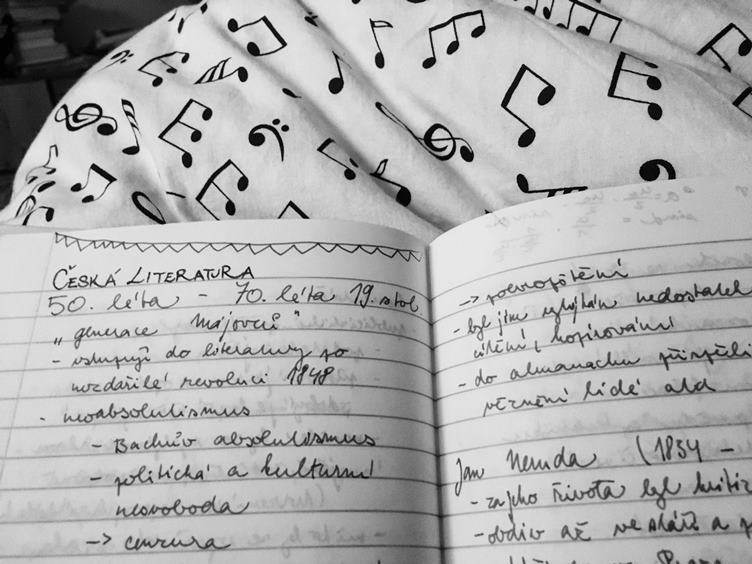 ČESKÁ LITERATURA
50. léta - 70. léta 19. stol.
„generace májovců"
- vstupují do literatury po
nezdařilé revoluci 1848
- neoabsolutismus
- Bachův absolutismus
- politická a kulturní
nesvoboda
-> cenzura
-> pohoršení
- byl jim vyčítán nedostatek
cítění, kopírování
- do almanachu přispěli
věznění lidé atd
Jan Neruda (1834 -
- za jeho života byl kritiz
- obdiv až ve stáří a p